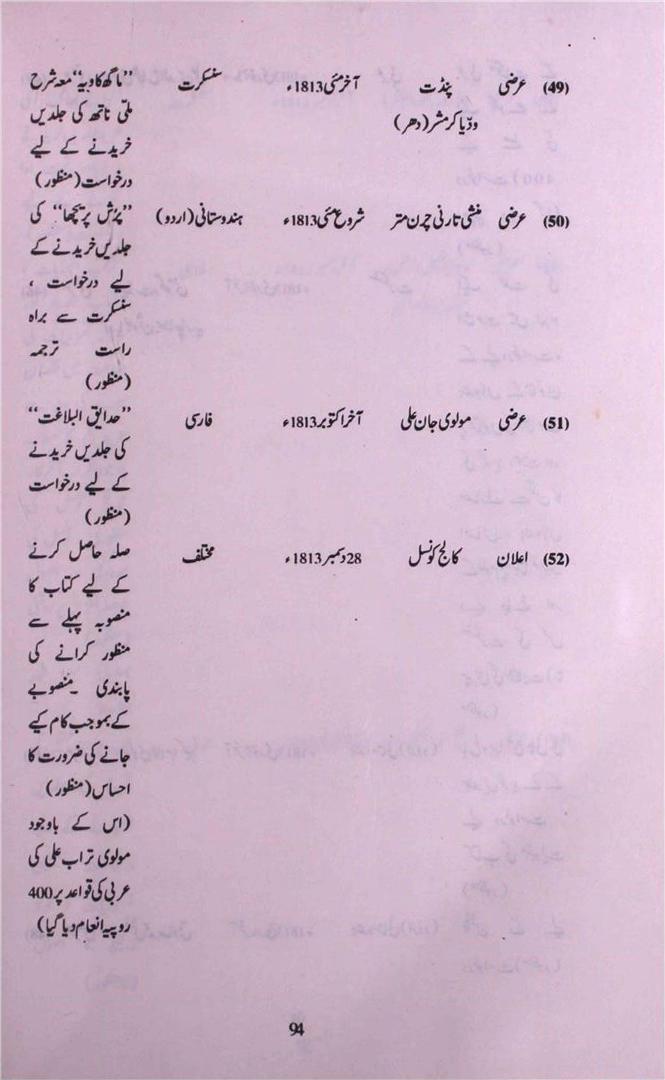 (49) عرضی پنڈت آخر مئی 1813ء سنسکرت ‘‘ماگھ کاویہ’’ معہ شرح
ودّیا کر مشر (دھر) ملّی ناتھ کی جلدیں
خریدنے کے لیے
درخواست (منظور)
(50) عرضی منشی تارنی چرن متر شروع مئی 1813ء ہندوستانی (اردو) ‘‘پرُش پریچھا’’ کی
جلدیں خریدنے کے
لیے درخواست ،
سنسکرت سے براہ
راست ترجمہ
(منظور)
(51) عرضی مولوی جان علی آخر اکتوبر 1813ء فارسی ‘‘حدایق البلاغت’’
کی جلدیں خریدنے
کے لیے درخواست
(منظور)
(52) اعلان کالج کونسل 28 دسمبر 1813ء مختلف صلہ حاصل کرنے
کے لیے کتاب کا
منصوبہ پہلے سے
منظور کرانے کی
پابندی ۔منصوبے
کے بموجب کام کیے
جانے کی ضرورت کا
احساس (منظور)
(اس کے باوجود
مولوی تراب علی کی
عربی کی قواعد پر 400
روپیہ انعام دیا گیا)
94